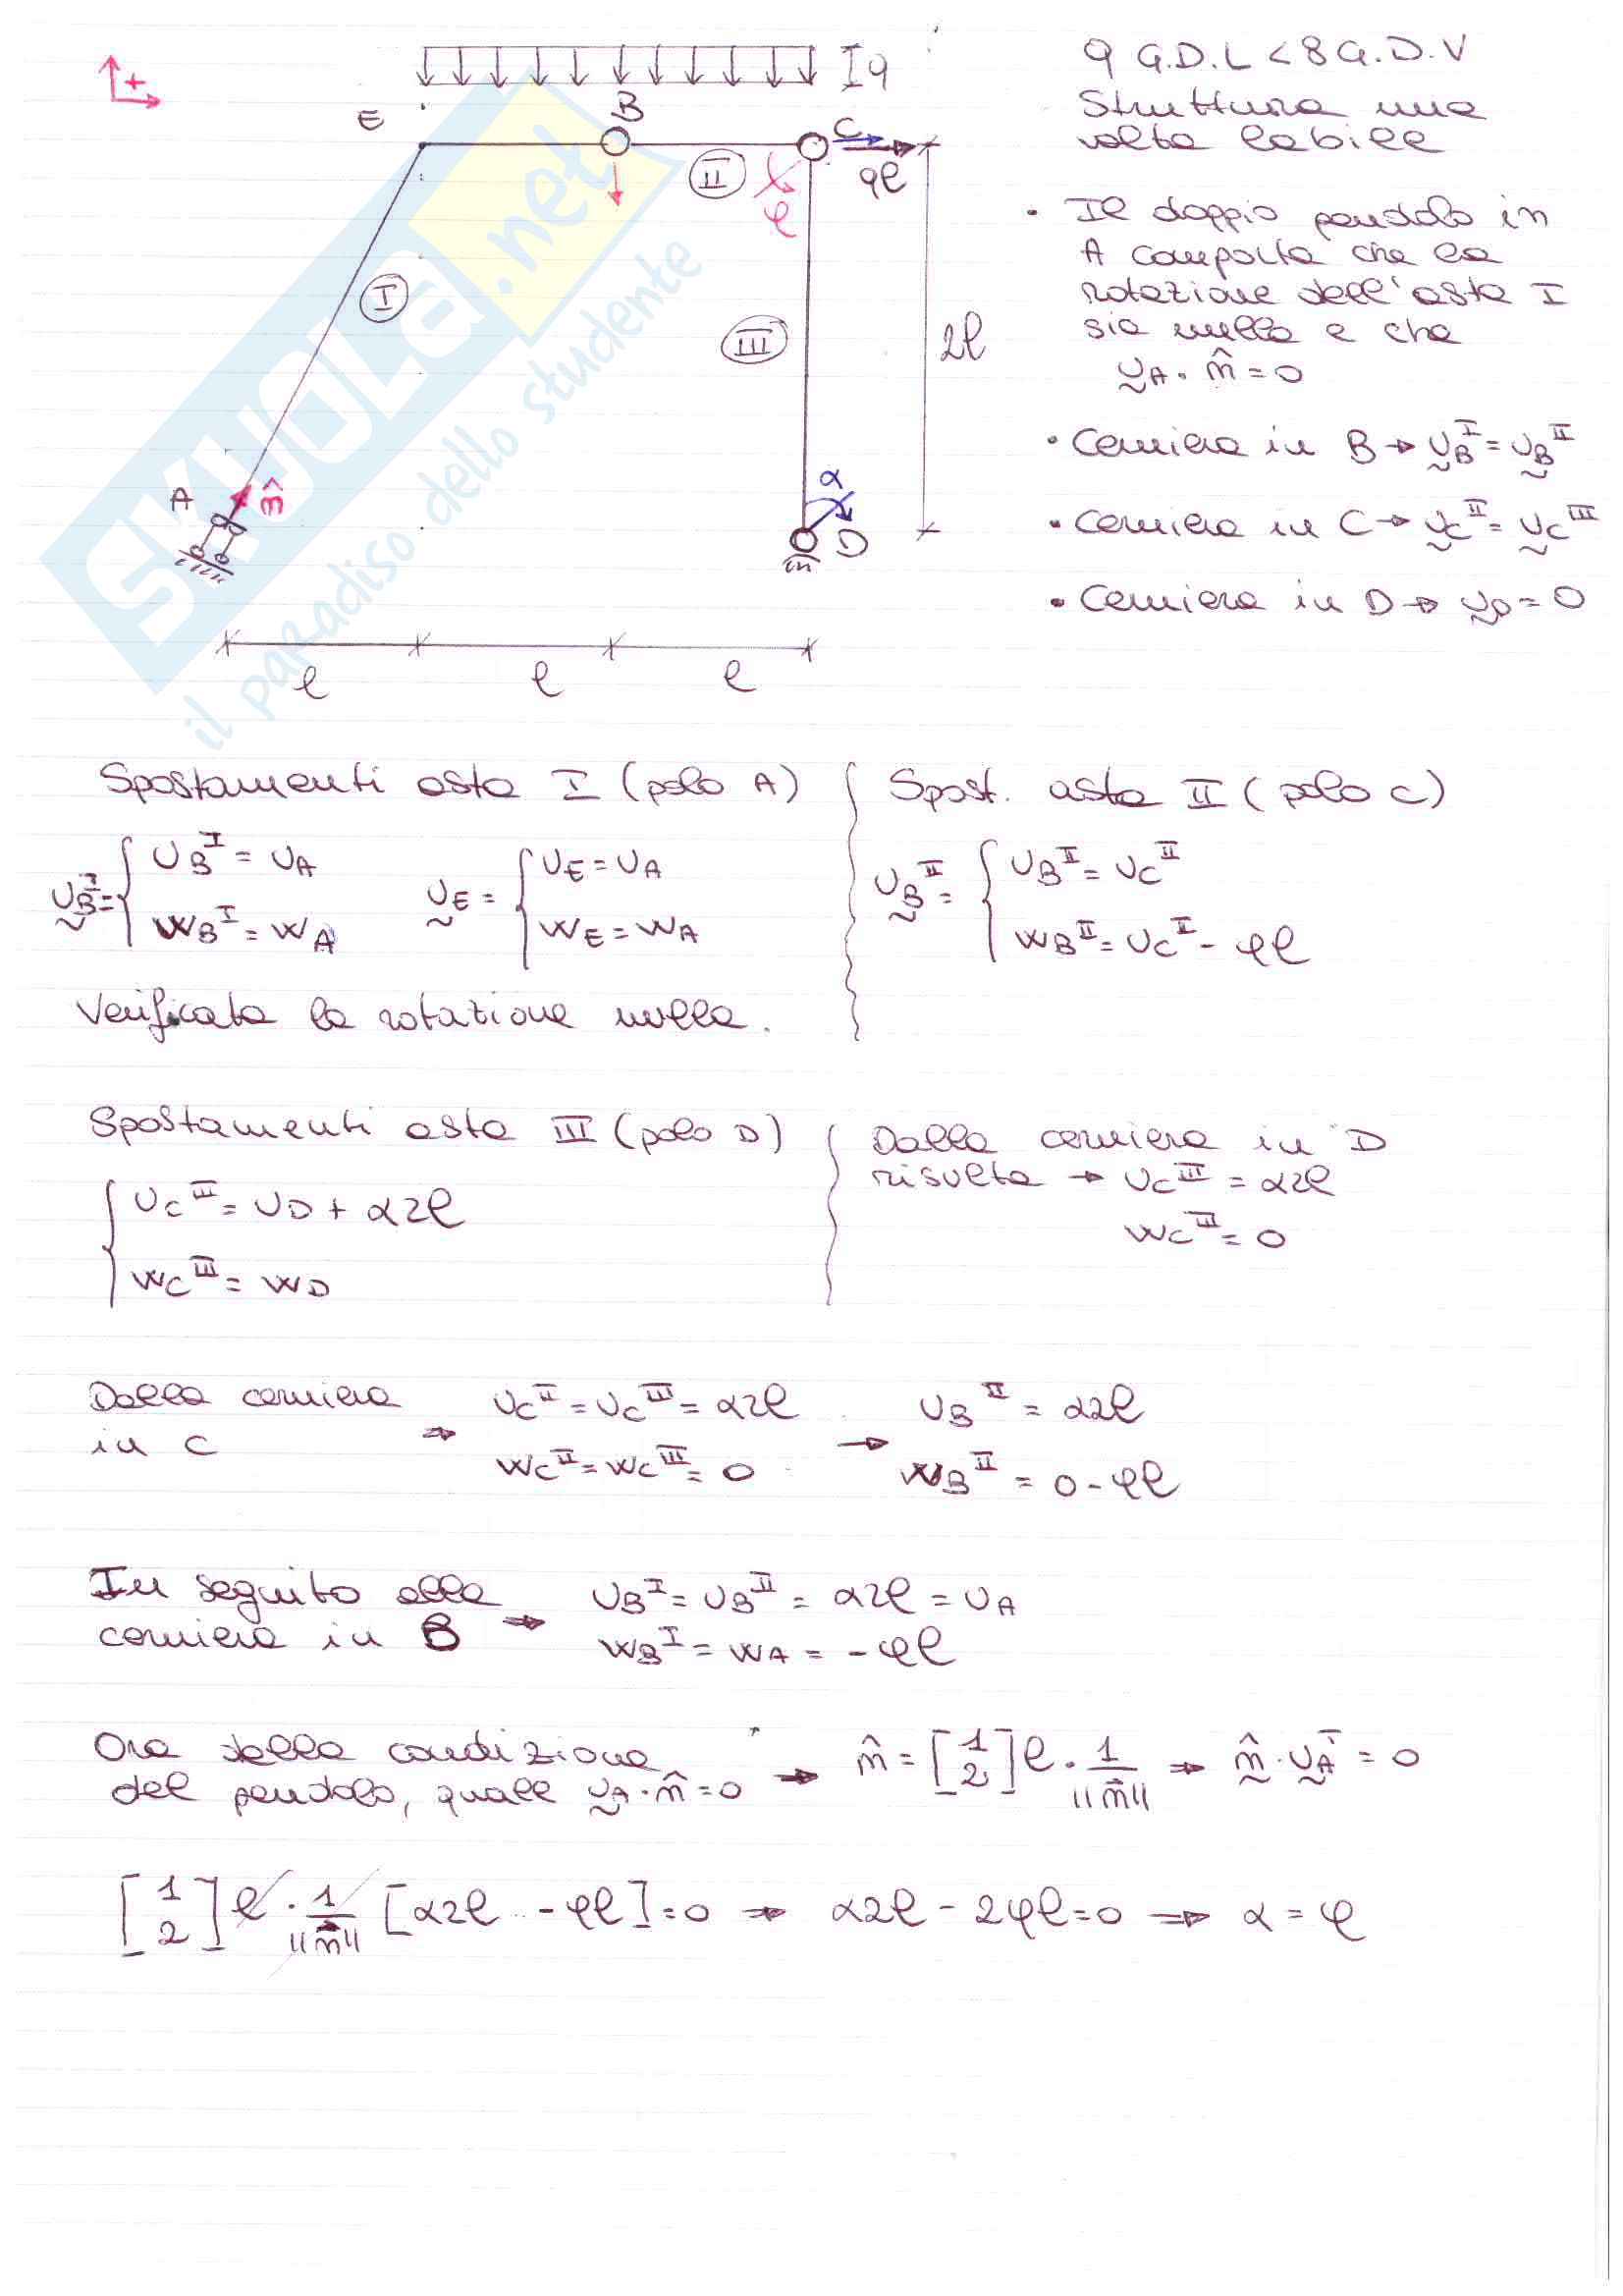 +
q
E
B
C
qℓ
II
φ
I
III
2ℓ
A
m̂
α
D
ℓ
ℓ
ℓ
SKUOLA.net
il paradiso dello studente
9 G.D.L < 8 G.D.V
Struttura una
volta labile
• Il doppio pendolo in
A comporta che la
rotazione dell'asta I
sia nulla e che
u_A · m̂ = 0
• Cerniera in B → u_B^I = u_B^II
• Cerniera in C → u_C^II = u_C^III
• Cerniera in D → u_D = 0
Spostamenti asta I (polo A)
u_B^I = { U_B^I = U_A
W_B^I = W_A
u_E = { U_E = U_A
W_E = W_A
Verificata la rotazione nulla.
Spost. asta II (polo C)
u_B^II = { U_B^II = U_C^II
W_B^II = U_C^II - φℓ
Spostamenti asta III (polo D)
{ U_C^III = U_D + α2ℓ
W_C^III = W_D
Dalla cerniera in D
risulta → U_C^III = α2ℓ
W_C^III = 0
Dalla cerniera
in C
→ U_C^II = U_C^III = α2ℓ
W_C^II = W_C^III = 0
→ U_B^II = α2ℓ
W_B^II = 0 - φℓ
In seguito alla
cerniera in B
→ U_B^I = U_B^II = α2ℓ = U_A
W_B^I = W_A = -φℓ
Ora dalla condizione
del pendolo, quale u_A · m̂ = 0
→ m̂ = [1 2] ℓ · 1/||m|| → m̂ · u_A = 0
[1 2] ℓ · 1/||m|| [α2ℓ - φℓ] = 0 → α2ℓ - 2φℓ = 0 → α = φ